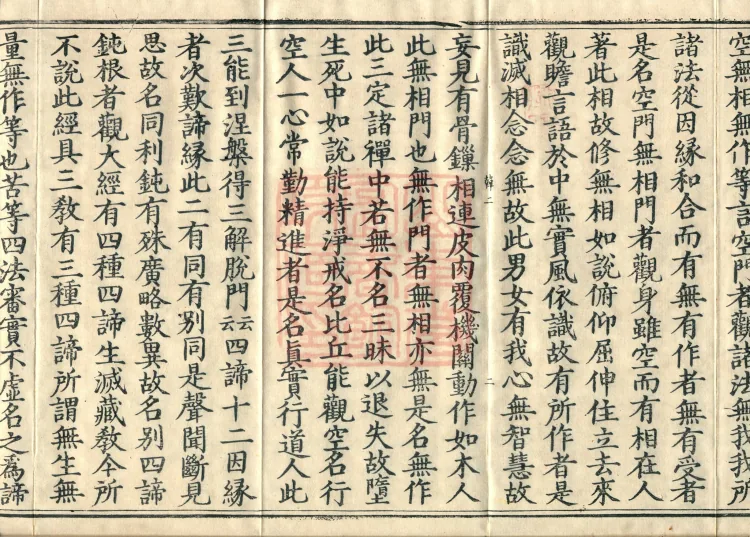 空無相無作等言空門者觀諸法無我我所
諸法從因緣和合而有無有作者無有受者
是名空門無相門者觀身雖空而有相在人
著此相故修無相如說俯仰屈伸住立去來
觀瞻言語於中無實風依識故有所作者是
識滅相念念無故此男女有我心無智慧故
妄見有骨鏁相連皮肉覆機關動作如木人
此無相門也無作門者無相亦無是名無作
此三定諸禪中若無不名三昧以退失故墮
生死中如說能持淨戒名比丘能觀空名行
空人一心常勤精進者是名真實行道人此
三能到涅槃得三解脫門云云四諦十二因緣
者次歎諦緣此二有同有別同是聲聞斷見
思故名同利鈍有殊廣略數異故名別四諦
鈍根者觀大經有四種四諦生滅藏教今所
不說此經具三教有三種四諦所謂無生無
量無作等也苦等四法審實不虛名之為諦
二